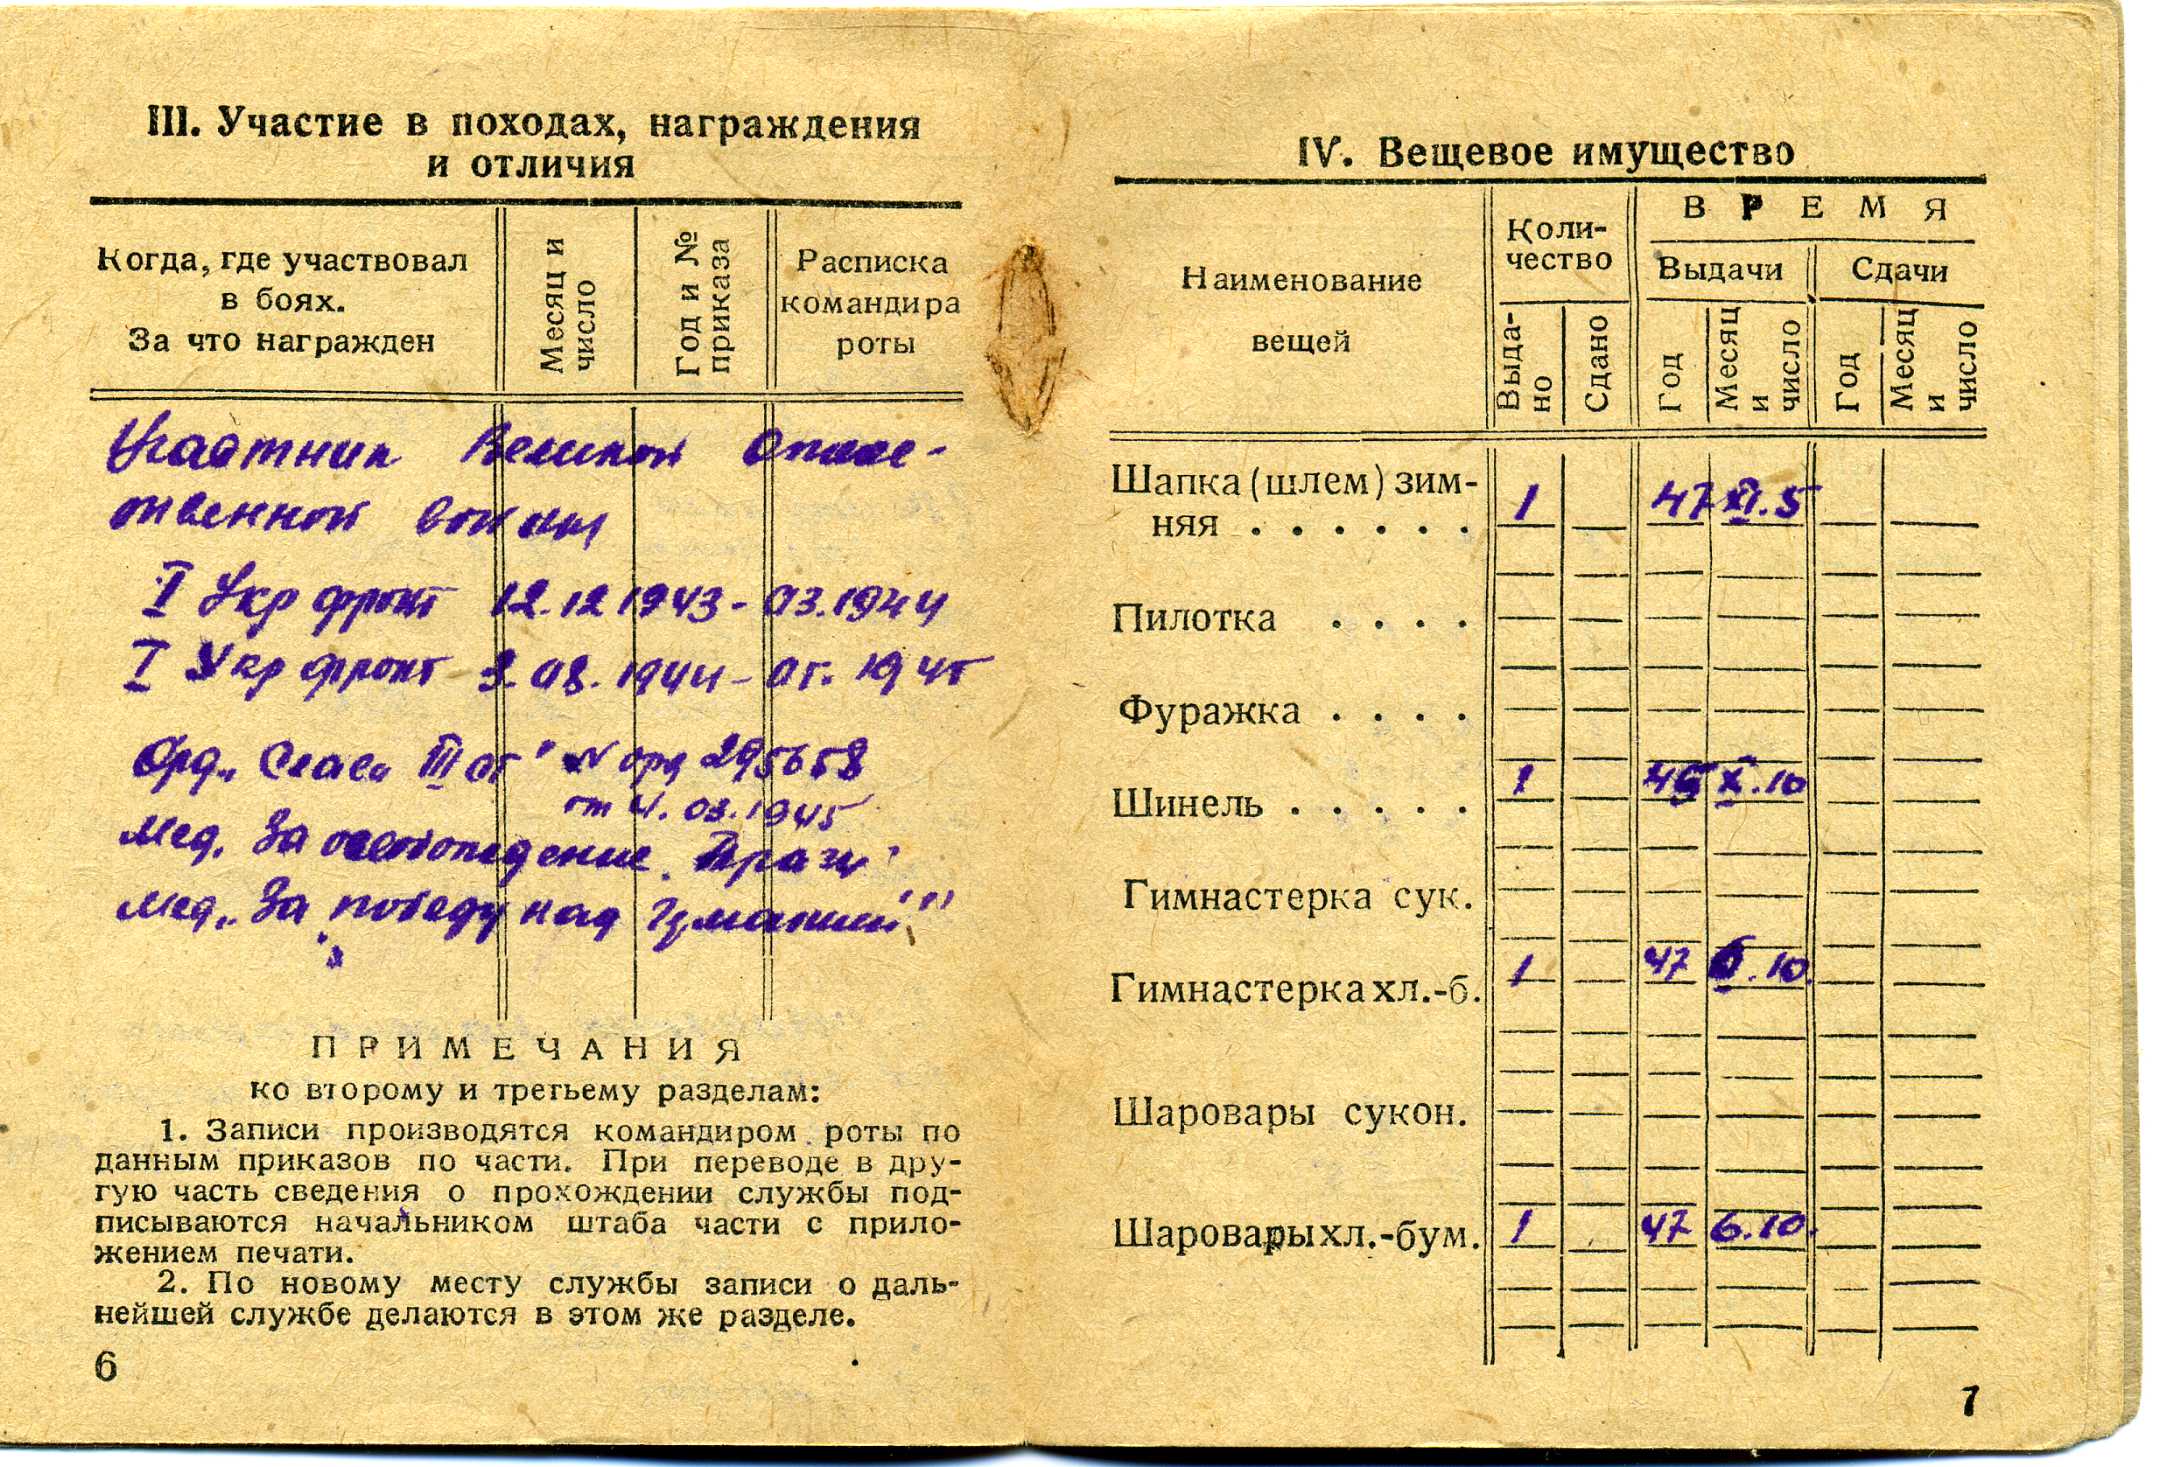 III. Участие в походах, награждения
и отличия
Когда, где участвовал
в боях.
За что награжден
Месяц и
число
Год и №
приказа
Расписка
командира
роты
Участник Великой Отече-
ственной войны
I Укр фронт 12.12 1943 - 03.1944
I Укр фронт 3.08.1944 - 05.1945
Орд. Славы III ст № орд 295658
от 4.03.1945
Мед. За освобождение Праги
Мед. За победу над Германией
ПРИМЕЧАНИЯ
ко второму и третьему разделам:
1. Записи производятся командиром роты по
данным приказов по части. При переводе в дру-
гую часть сведения о прохождении службы под-
писываются начальником штаба части с прило-
жением печати.
2. По новому месту службы записи о даль-
нейшей службе делаются в этом же разделе.
6
IV. Вещевое имущество
Наименование
вещей
Коли-
чество
ВРЕМЯ
Выдачи
Сдачи
Выда-
но
Сдано
Год
Месяц
и
число
Год
Месяц
и
число
Шапка (шлем) зим-
няя . . . . . . 1 47 XI.5
Пилотка . . . .
Фуражка . . . .
Шинель . . . . . 1 45 X.10
Гимнастерка сук.
Гимнастерка хл.-б. 1 47 6.10.
Шаровары сукон.
Шаровары хл.-бум. 1 47 6.10.
7